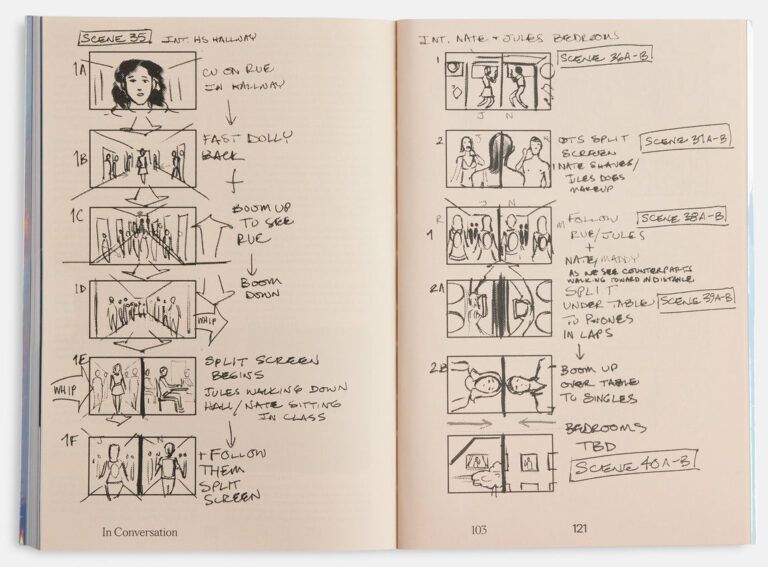 SCENE 35 INT. HS HALLWAY
1A
CU ON RUE
IN HALLWAY
1B
FAST DOLLY
BACK
1C
BOOM UP
TO SEE
RUE
1D
BOOM
DOWN
WHIP
1E
WHIP
SPLIT SCREEN
BEGINS
JULES WALKING DOWN
HALL/NATE SITTING
IN CLASS
1F
J N
+ FOLLOW
THEM
SPLIT
SCREEN
In Conversation
INT. NATE + JULES BEDROOMS
1
SCENE 36A-B
J N
2
OTS SPLIT
SCREEN
NATE SHAVES/
JULES DOES
MAKEUP
SCENE 37A-B
R J N M
1
FOLLOW
RUE/JULES
+
NATE/MADDY
AS WE SEE COUNTERPARTS
WALKING TOWARD IN DISTANCE
SCENE 38A-B
2A
SPLIT
UNDER TABLE
TO PHONES
IN LAPS
SCENE 39A-B
2B
BOOM UP
OVER TABLE
TO SINGLES
BEDROOMS
TBD
SCENE 40A-B
103
121